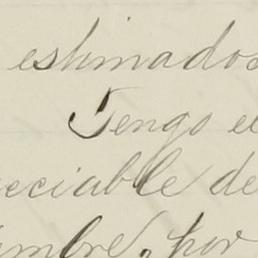 estimados
Tengo el
eciable de
mbre, por